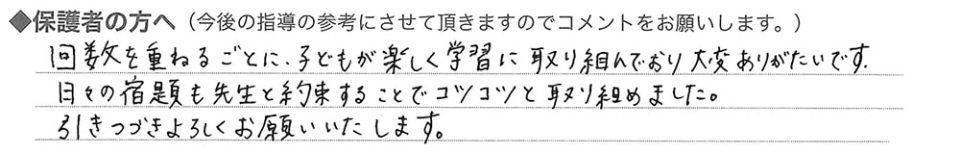 ◆保護者の方へ（今後の指導の参考にさせて頂きますのでコメントをお願いします。）
1回数を重ねるごとに、子どもが楽しく学習に取り組んでおり大変ありがたいです.
日々の宿題も先生と約束することでコツコツと取り組めました。
引きつづきよろしくお願いいたします。